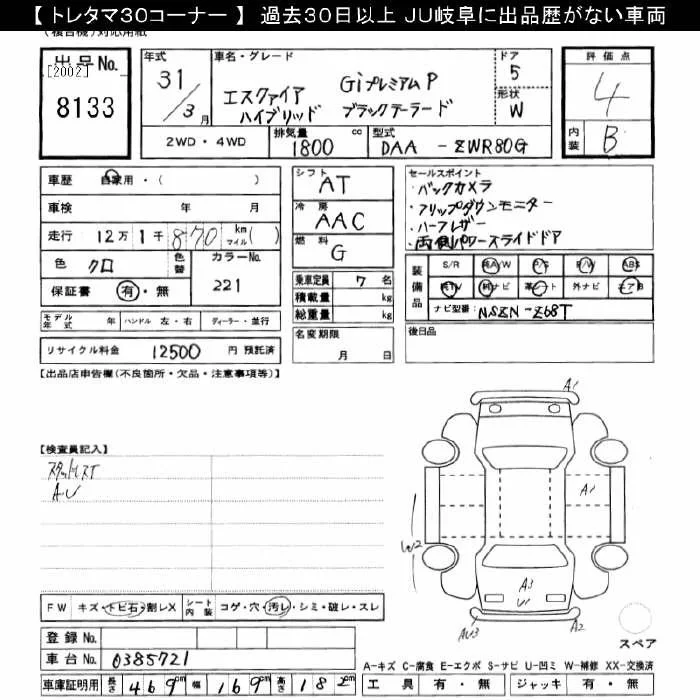 【 トレタマ30コーナー 】 過去30日以上 JU岐阜に出品歴がない車両
出品No.
[2002]
8133
年式
31/3月
車名・グレード
エスクァイア Giプレミアム P
ハイブリッド ブラックテーラード
ドア
5
形状
W
評価点
4
内装
B
2WD・4WD
排気量
1800 cc
型式
DAA - ZWR80G
車歴 自家用・( )
車検 年 月
走行 12万1千870 km マイル( )
色 クロ
色替
カラーNo.
221
保証書 有・無
シフト
AT
冷房
AAC
燃料
G
乗車定員 7 名
積載量 kg
総重量 kg
名変期限
月 日
セールスポイント
・バックカメラ
・フリップダウンモニター
・ハーフレザー
・両側パワースライドドア
装備品
S/R A/W P/S P/W ABS
TV 純ナビ 革シート 外ナビ エアB
ナビ型番: NSZN-Z68T
後日品
モデル年式 年 ハンドル 左・右 ディーラー・並行
リサイクル料金 12500 円 預託済
【出品店申告欄(不良箇所・欠品・注意事項等)】
【検査員記入】
スタッドレスT
AU
A1
A1
W2
A3
U
AU3
A2
スペア
FW キズ・トビ石・割レX
シート内装 コゲ・穴・汚レ・シミ・破レ・スレ
登録No.
車台No. 0385721
車庫証明用 長さ 469cm 幅 169cm 高さ 182cm
A-キズ C-腐食 E-エクボ S-サビ U-凹ミ W-補修 XX-交換済
工具 有・無 ジャッキ 有・無